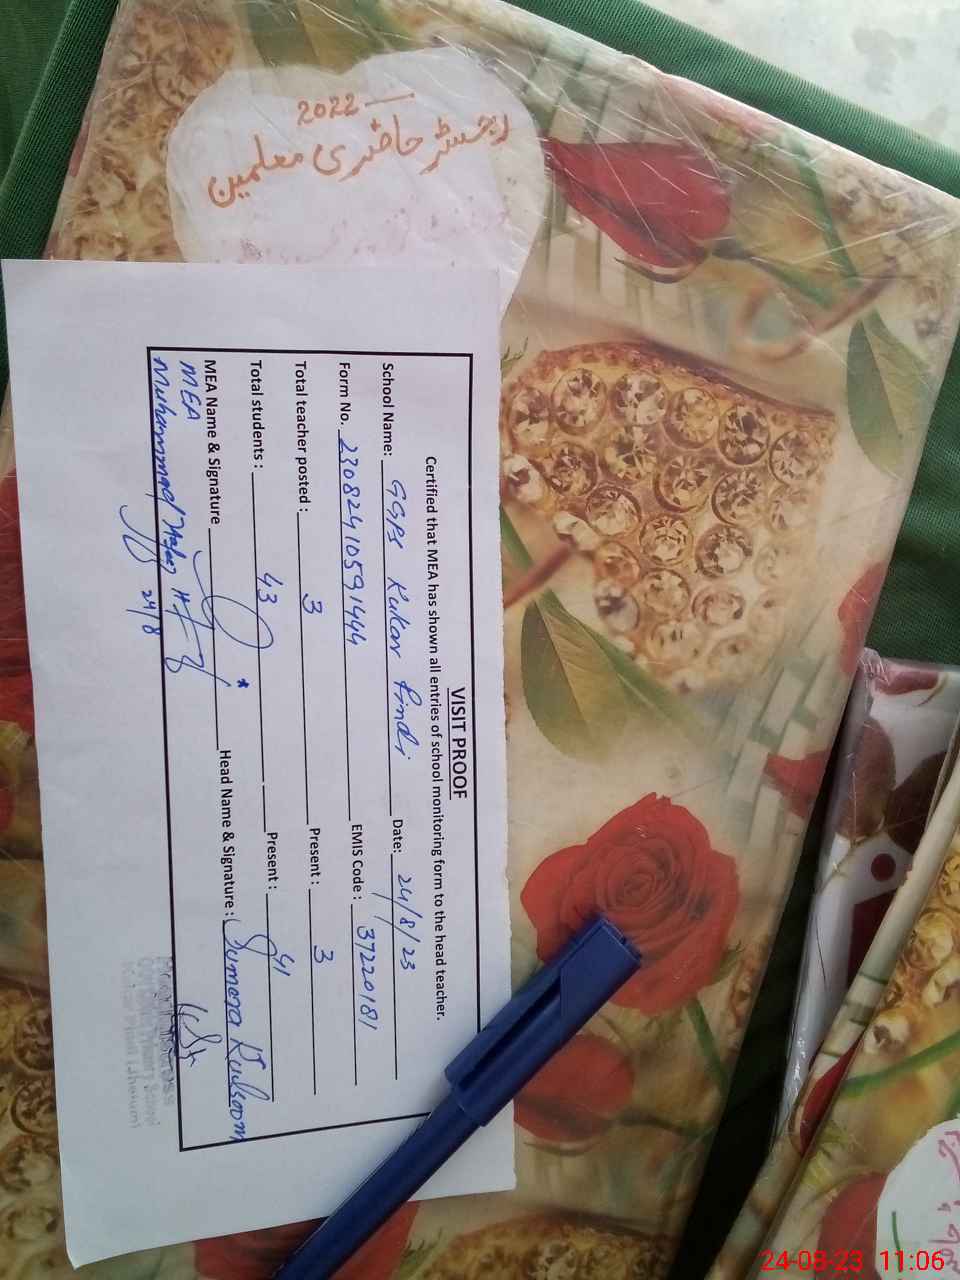 2022
رجسٹر حاضری معلمین
VISIT PROOF
Certified that MEA has shown all entries of school monitoring form to the head teacher.
School Name: GGPS Kukar Pindi Date: 24/8/23
Form No. 23082410591444 EMIS Code: 37220181
Total teacher posted: 3 Present: 3
Total students: 43 Present: 41
MEA Name & Signature Head Name & Signature: Sumera Kulsoom
MEA
Muhammad 24/8
24-08-23 11:06